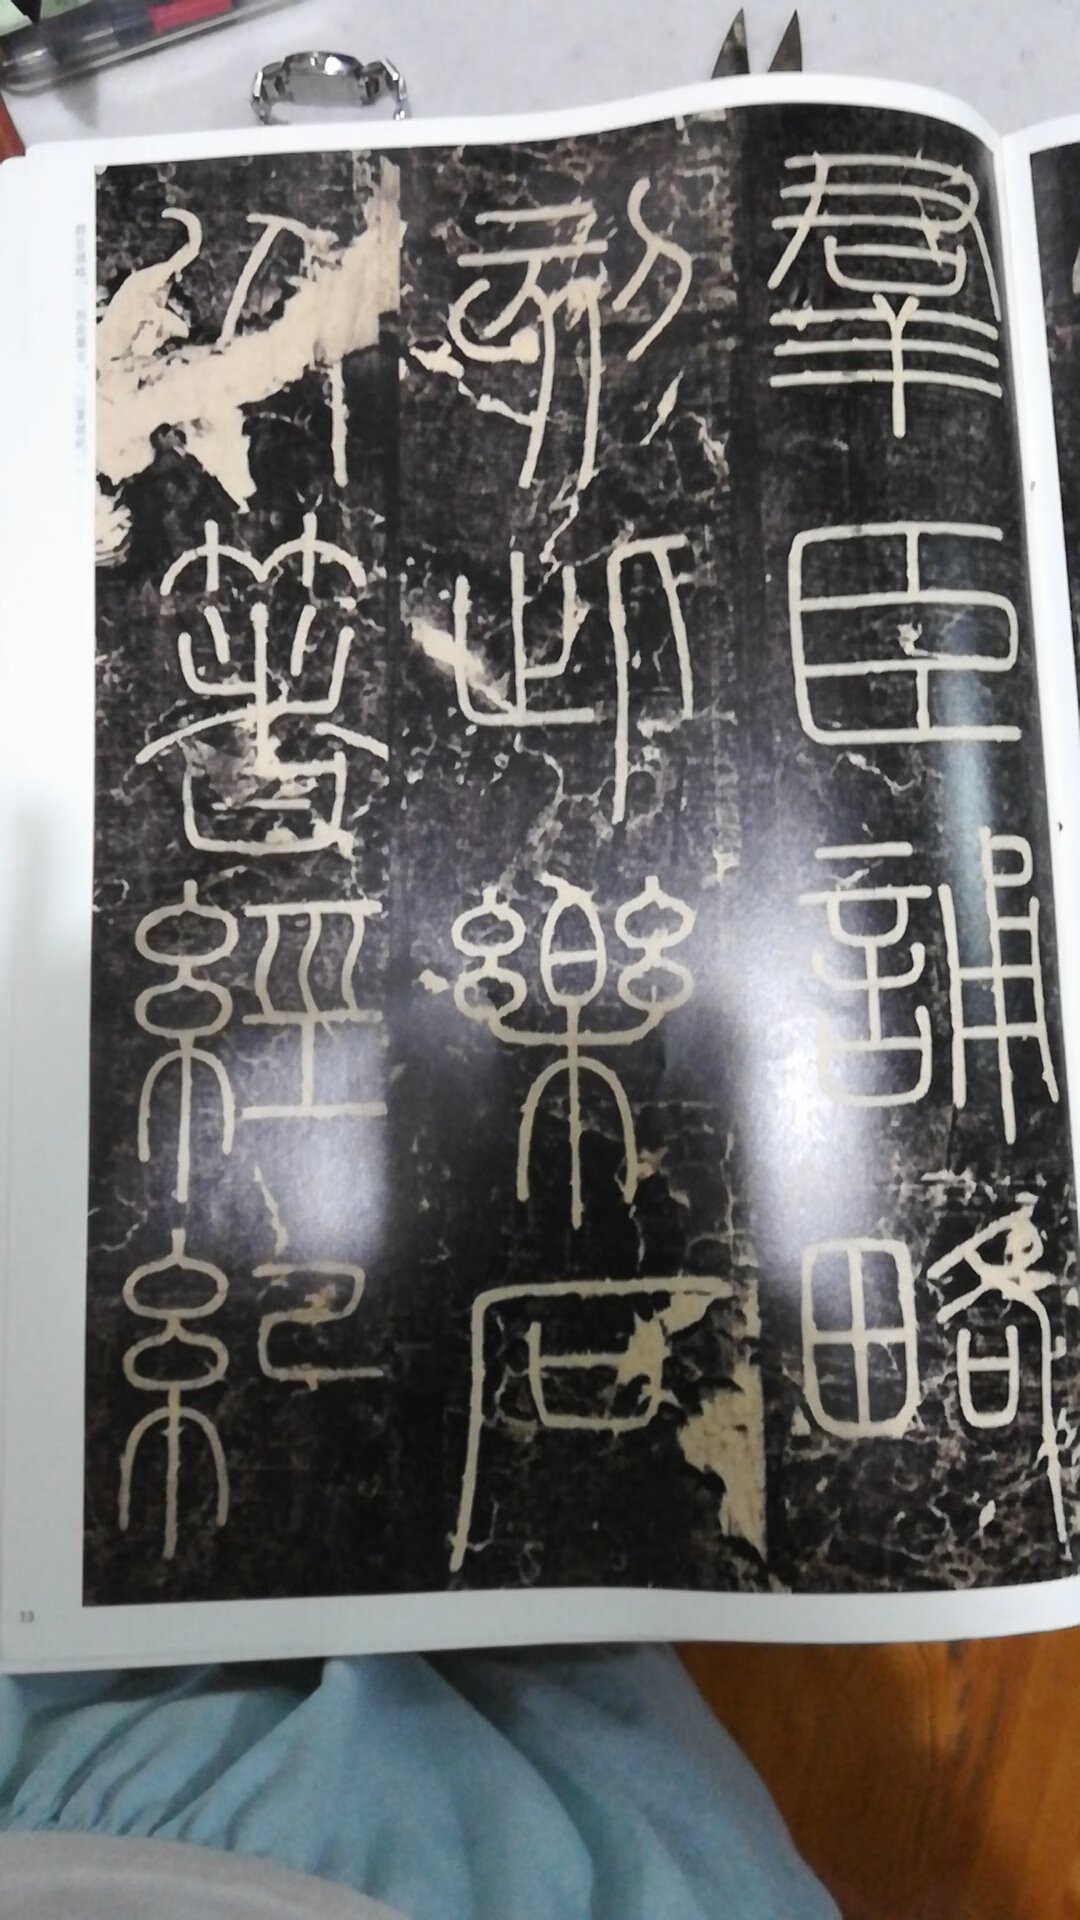 群臣誦略
刻此樂石
以著經紀
19